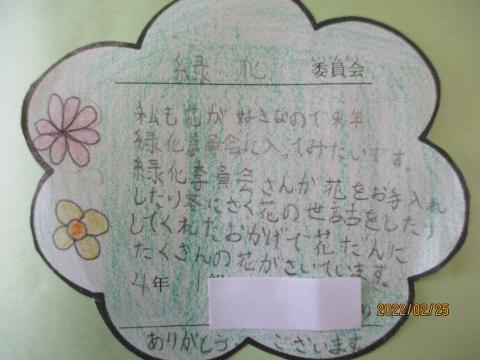 緑化 委員会
私も花が好きなので来年
緑化委員会に入ってみたいです。
緑化委員会さんが花をお手入れ
したり冬にさく花の世話をしたり
してくれたおかげで花だんに
たくさんの花がさいています。
4年 1組
2022/02/25
ありがとうございます